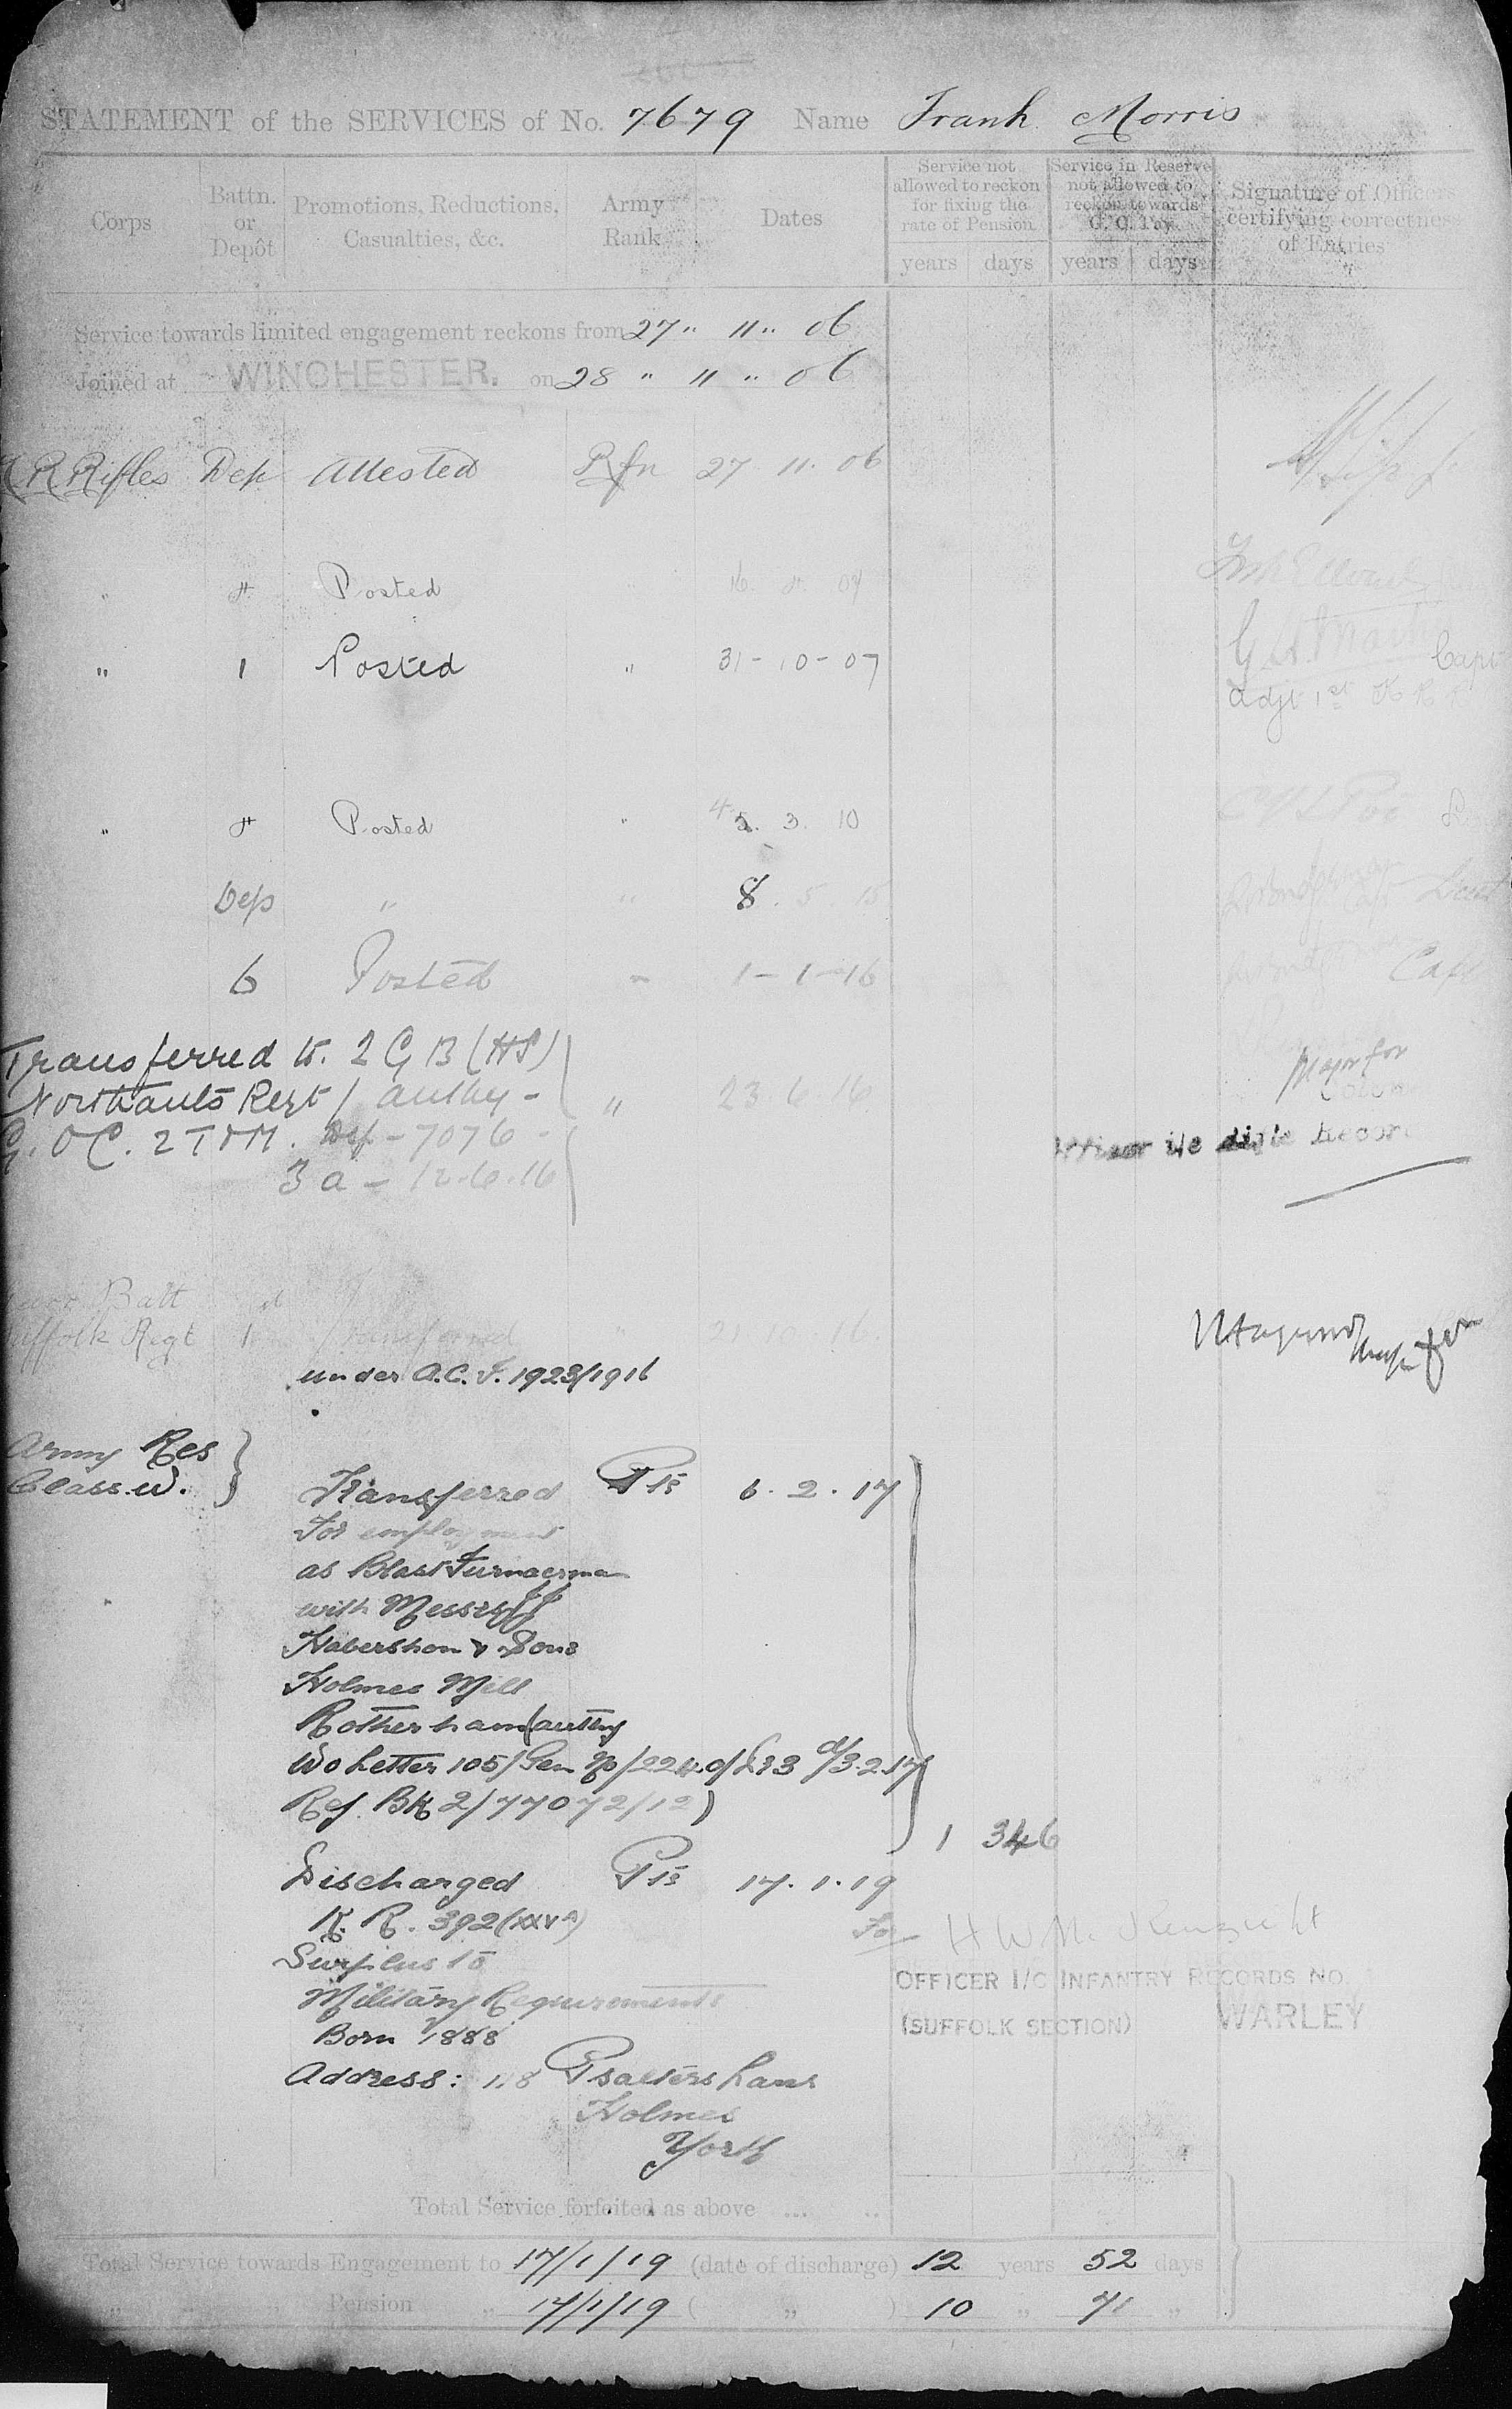 STATEMENT of the SERVICES of No. 7679 Name Frank Morris
Corps
Battn. or Depôt
Promotions, Reductions, Casualties, &c.
Army Rank
Dates
Service not allowed to reckon for fixing the rate of Pension
years days
Service in Reserve not allowed to reckon towards G. C. Pay
years days
Signature of Officers certifying correctness of Entries
Service towards limited engagement reckons from 27 " 11 " 06
Joined at WINCHESTER. on 28 " 11 " 06
K R Rifles Dep Attested Rfn 27 11. 06
" 4 Posted " 16. 4. 07
" 1 Posted " 31-10-07
Capt
Adjt 1st K R R
" 4 Posted " 3. 10
Dep " " 8. 5. 15
6 Posted " 1-1-16
Capt
Transferred to. 2 G B (HS)
Northants Regt / authy - " 23. 6 16
G. O C. 2 T M. - 7076 -
3 a - 12.6.16
Major for
Colon
Officer i/c Rifle Record
Batt
Suffolk Regt 1 Transferred " 16.
under A.C.I. 1923/1916
Army Res
Class W.
Transferred Pte 6. 2. 17
For employment
as Blast Furnaceman
with Messrs
Habershon & Sons
Holmes Mill
Rotherham (authy
Wo Letter 105/Gen No/224 d/3.2.17
Ref. BK 2/77072/12)
1 346
Discharged Pte 17. 1. 19
K. R. 392 (xxvA)
For
Surplus to
Military Requirements
OFFICER I/C INFANTRY RECORDS NO.
(SUFFOLK SECTION) WARLEY
Born 1888
Address: 118 Psalters Lane
Holmes
York
Total Service forfeited as above ... ..
Total Service towards Engagement to 17/1/19 (date of discharge) 12 years 52 days
" " Pension " 17/1/19 ( " ) 10 " 71 "